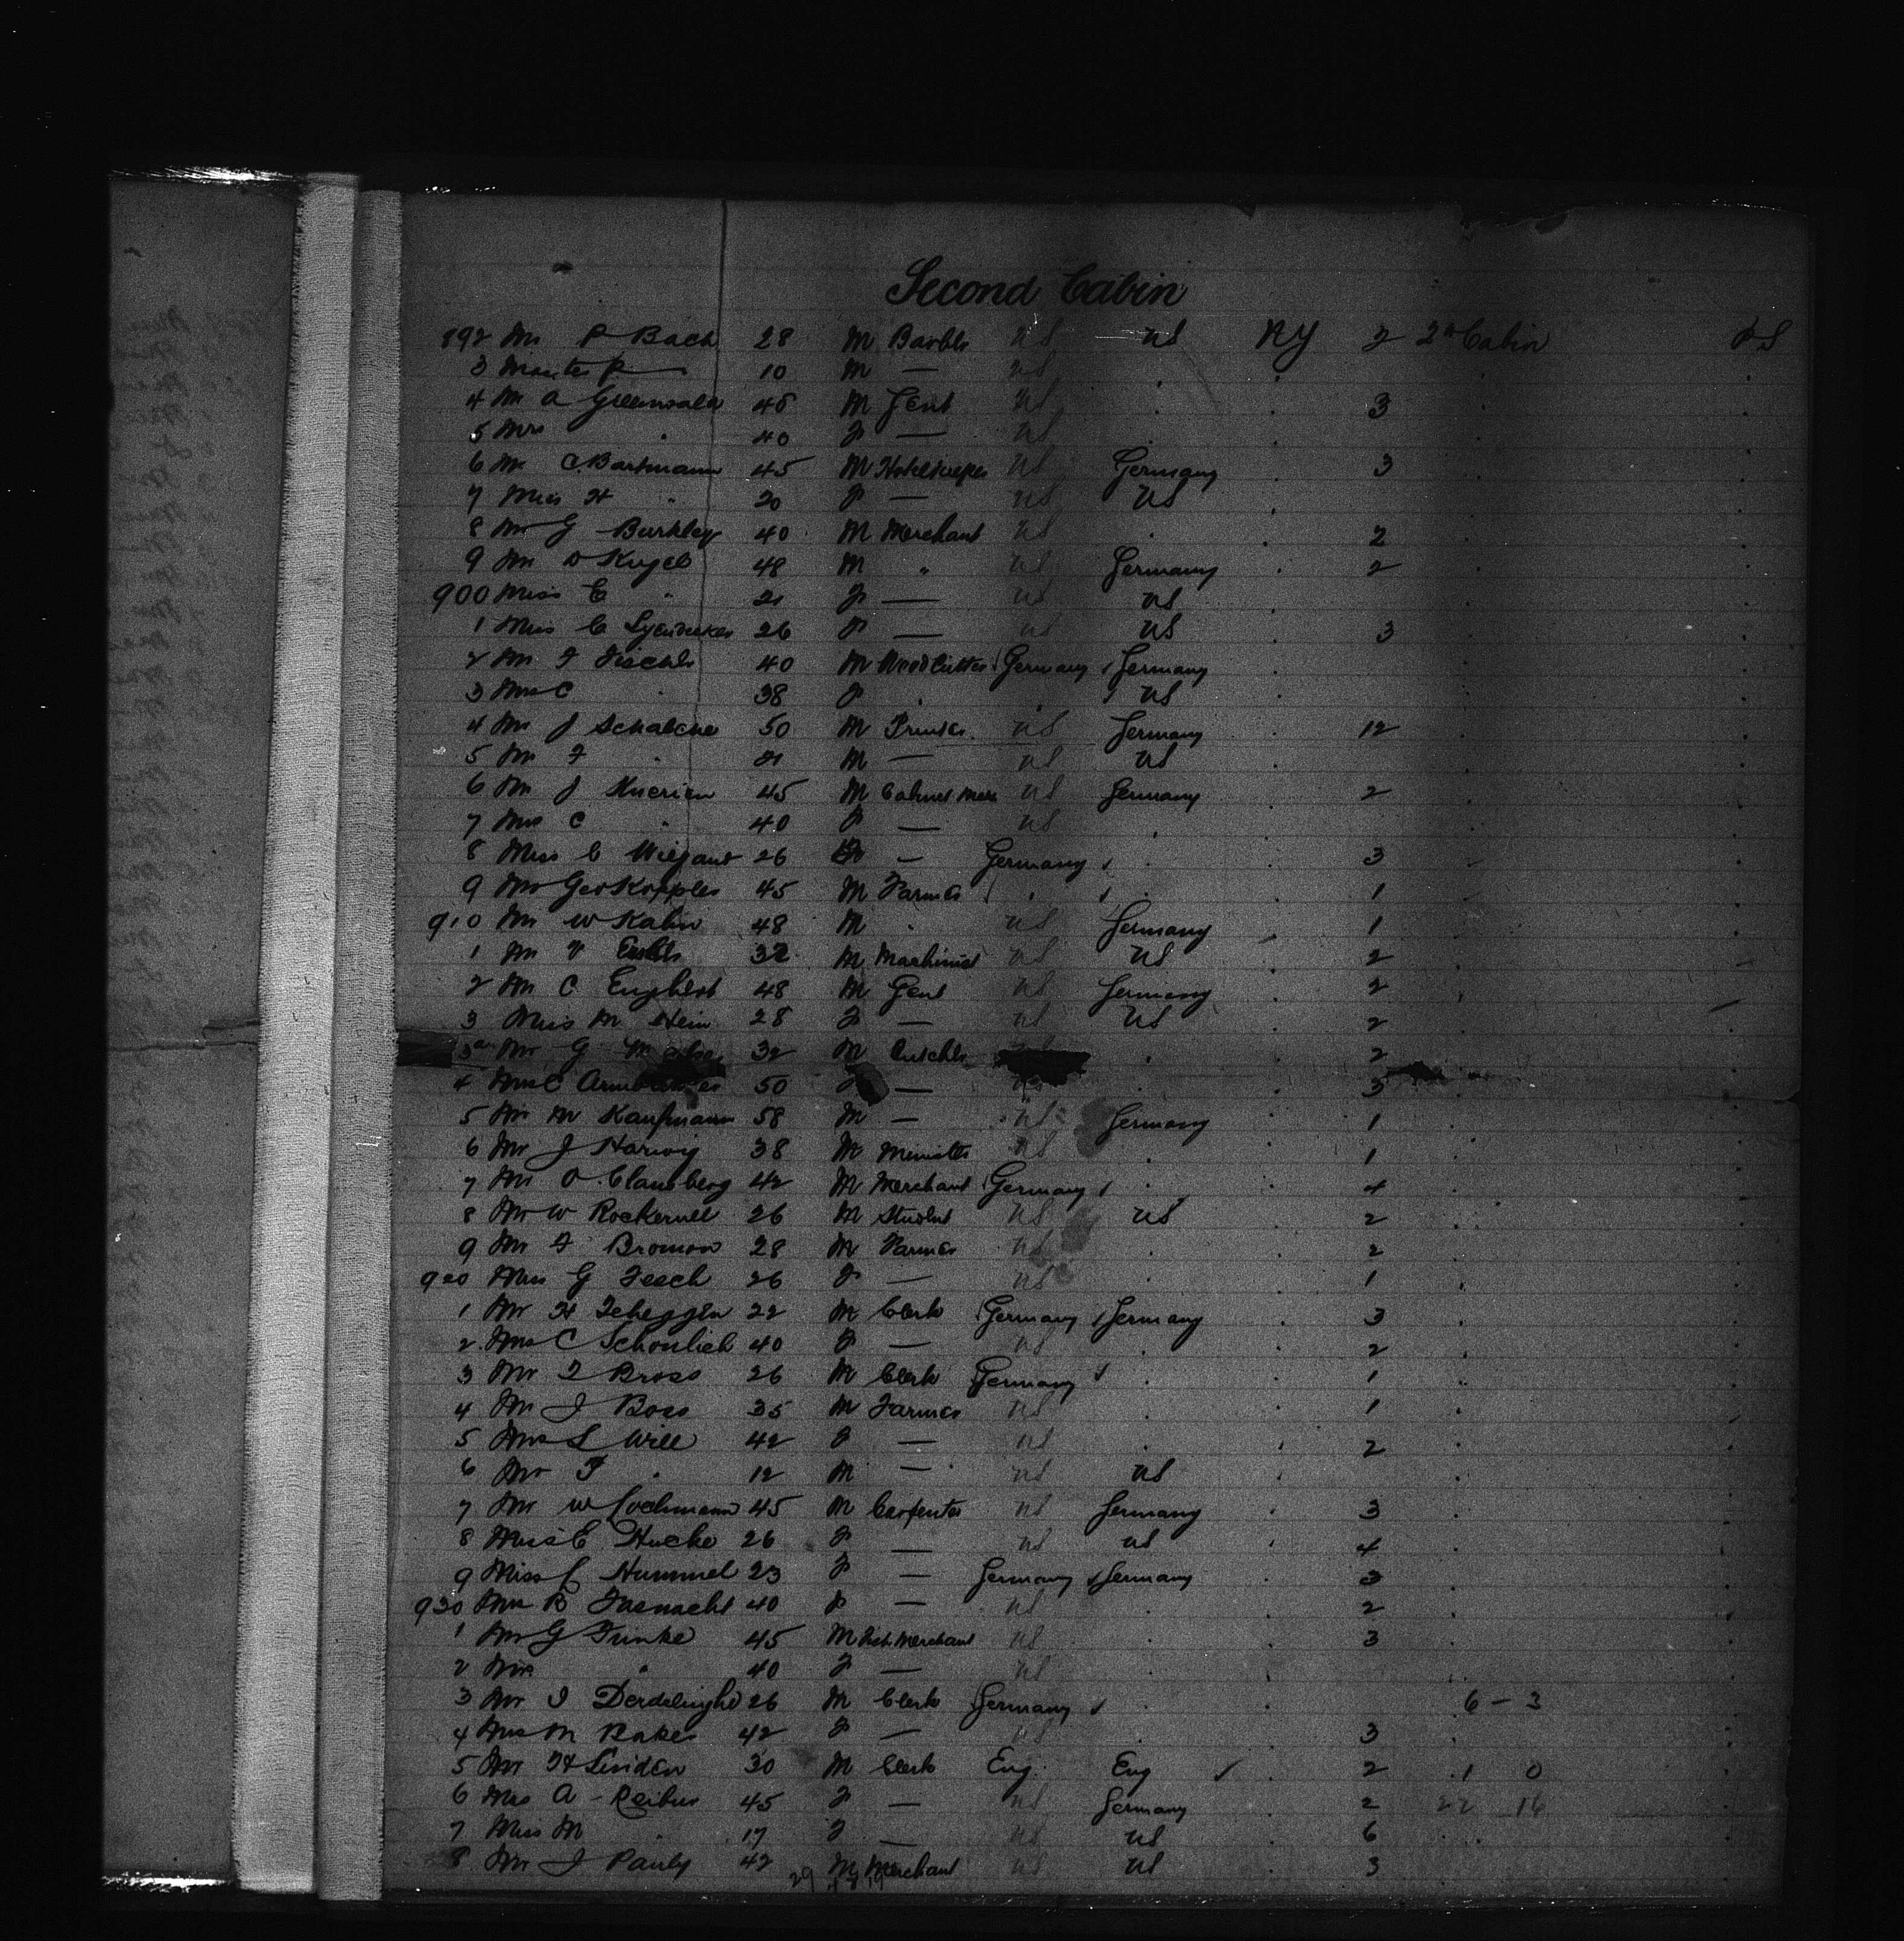 Second Cabin
892 Mr P Bach 28 M US US NY 2 2d Cabin
3 10 M — US
4 Mr A Greenwald 45 M Gent US . . 3
5 Mrs " 40 F — US
6 Mr C Bartmann 45 M Hotelkeeper US Germany . 3
7 Miss H " 20 F — US US
8 Mr G Burkley 40 M Merchant US . . 2
9 Mr D Kugel 48 M " US Germany . 2
900 Miss E " 21 F — US US
1 Miss C 26 F — US US . 3
2 Mr F 40 M Woodcutter Germany Germany
3 Mrs C " 38 F . US
4 Mr J 50 M Printer US Germany . 12
5 Mr F " 21 M — US US
6 Mr J 45 M Cabinet US Germany . 2
7 Mrs C " 40 F — US
8 Miss C Wiegant 26 F — Germany . . 3
9 Mr Geo Koppler 45 M Farmer . . . 1
910 Mr W Kahn 48 M " US Germany . 1
1 Mr 32 M Machinist US US . 2
2 Mr C Englert 48 M Gent US Germany . 2
3 Miss M Stein 28 F — US US . 2
3a Mr G 32 M . . 2
4 Mrs C 50 F — US . . 3
5 Mr M Kaufmann 58 M — US Germany . 1
6 Mr J Harwig 38 M Minister US . . 1
7 Mr O Clausberg 42 M Merchant Germany . . 4
8 Mr W 26 M Student US US . 2
9 Mr F 28 M Farmer US . . 2
920 Miss G Fesch 26 F — US . . 1
1 Mr H 22 M Clerk Germany Germany . 3
2 Mrs C Schonlieh 40 F — US . . 2
3 Mr F Bross 26 M Clerk Germany . . 1
4 Mr J Boss 35 M Farmer US . . 1
5 Mrs L Will 42 F — US . . 2
6 Mr F " 12 M — US US
7 Mr W 45 M Carpenter US Germany . 3
8 Miss E Hucke 26 F — US US . 4
9 Miss C Hummel 23 F — Germany Germany . 3
930 Mrs B Fasnacht 40 F — US . . 2
1 Mr G Funke 45 M Merchant US . . 3
2 Mrs " 40 F — US
3 Mr 26 M Clerk Germany . 6 – 3
4 Mrs M Baker 42 F — US . . 3
5 Mr H Linden 30 M Clerk Eng. Eng . 2 1 0
6 Mrs A Reiber 45 F — US Germany . 2 22 16
7 Miss M " 17 F — US US . 6
8 Mr J Pauly 42 M Merchant US US . 3
29 19